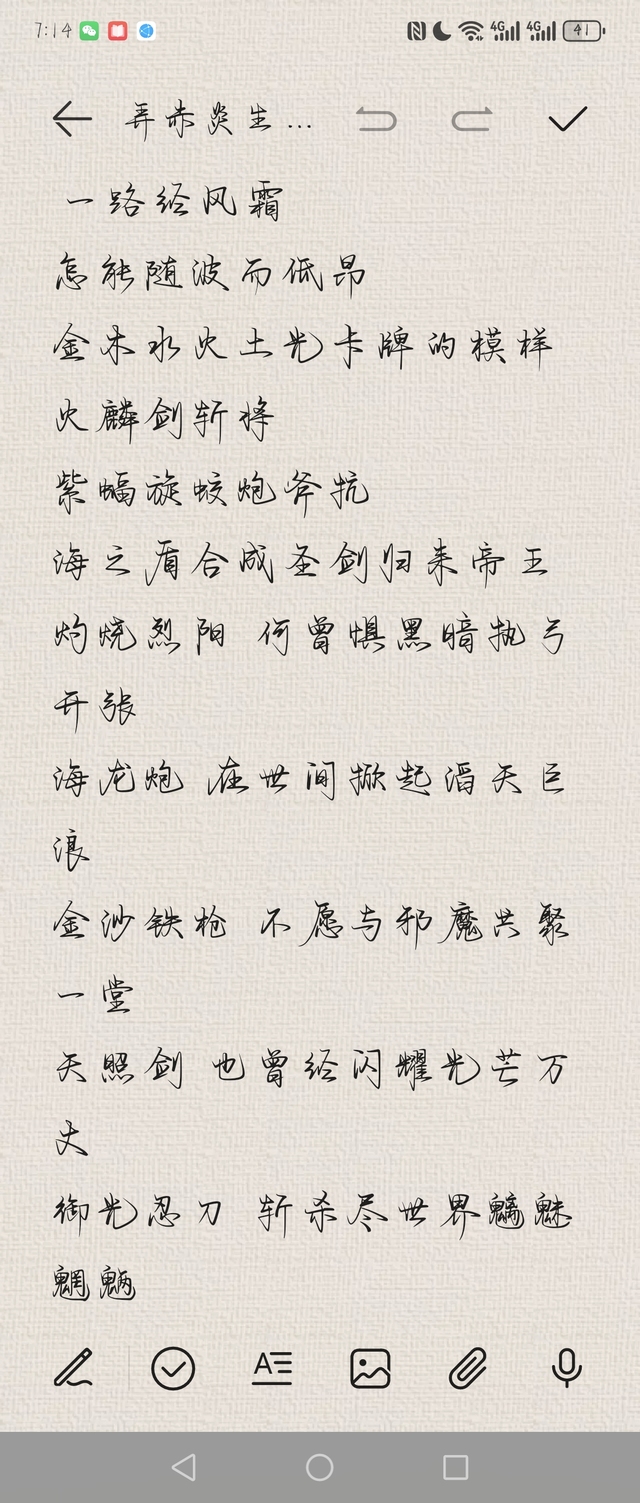 7:14 4G 4G 41
弄赤炎生...
一路经风霜
怎能随波而低昂
金木水火土光卡牌的模样
火麟剑斩将
紫蝠旋蛟炮斧抗
海之盾合成圣剑归来帝王
灼烧烈阳 何曾惧黑暗执弓
开张
海龙炮 在世间掀起滔天巨
浪
金沙铁枪 不愿与邪魔共聚
一堂
天照剑 也曾经闪耀光芒万
丈
御光忍刀 斩杀尽世界魑魅
魍魉